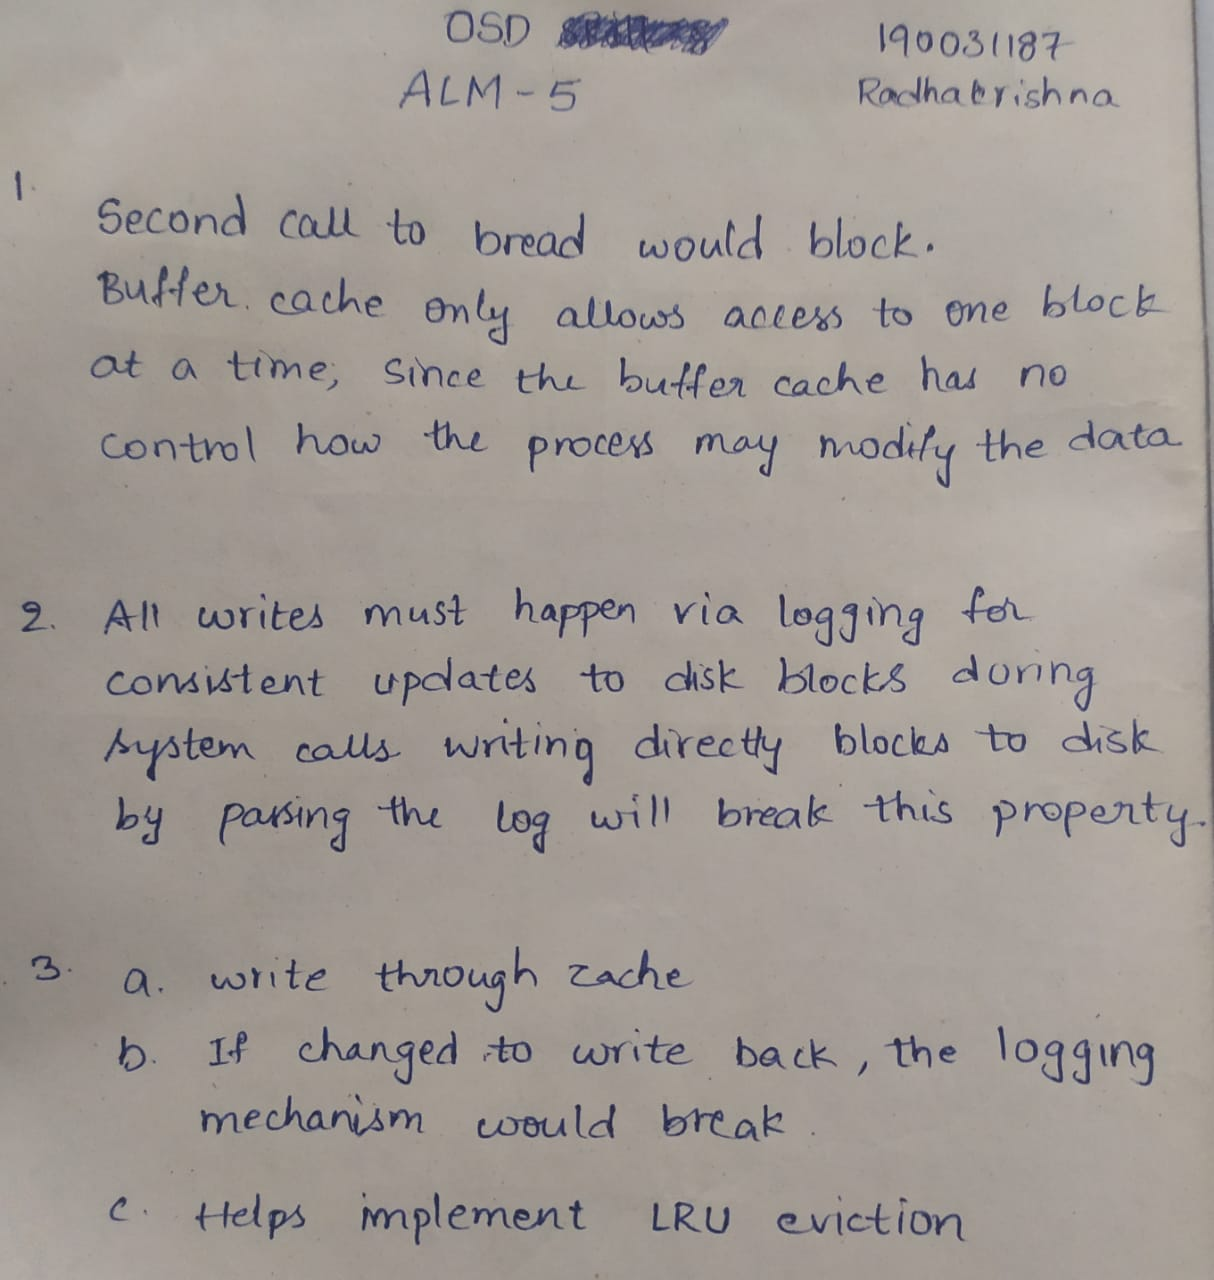 OSD
190031187
ALM-5
Radhakrishna
1.
Second call to bread would block.
Buffer cache only allows access to one block
at a time, since the buffer cache has no
control how the process may modify the data
2. All writes must happen via logging for
consistent updates to disk blocks during
system calls writing directly blocks to disk
by parsing the log will break this property.
3. a. write through cache
b. If changed to write back, the logging
mechanism would break.
c. Helps implement LRU eviction